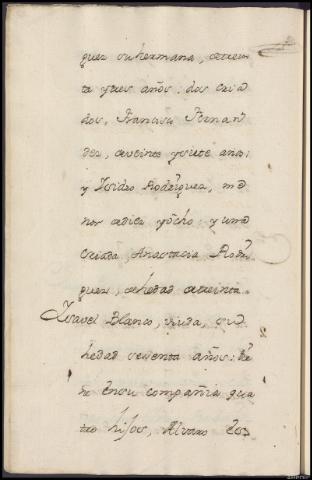 guez su hermana, de trein
ta y tres años: dos cria
dos, Francisco Fernan
dez, de veinte y siete años:
y Isidro Rodriguez, me
nor de diez y ocho: y una
criada, Anastacia Rodri
guez, de hedad de treinta.
Isavel Blanco, viuda, su
hedad sesenta años: tie
ne en su compañia qua
tro hijos, Alvaro